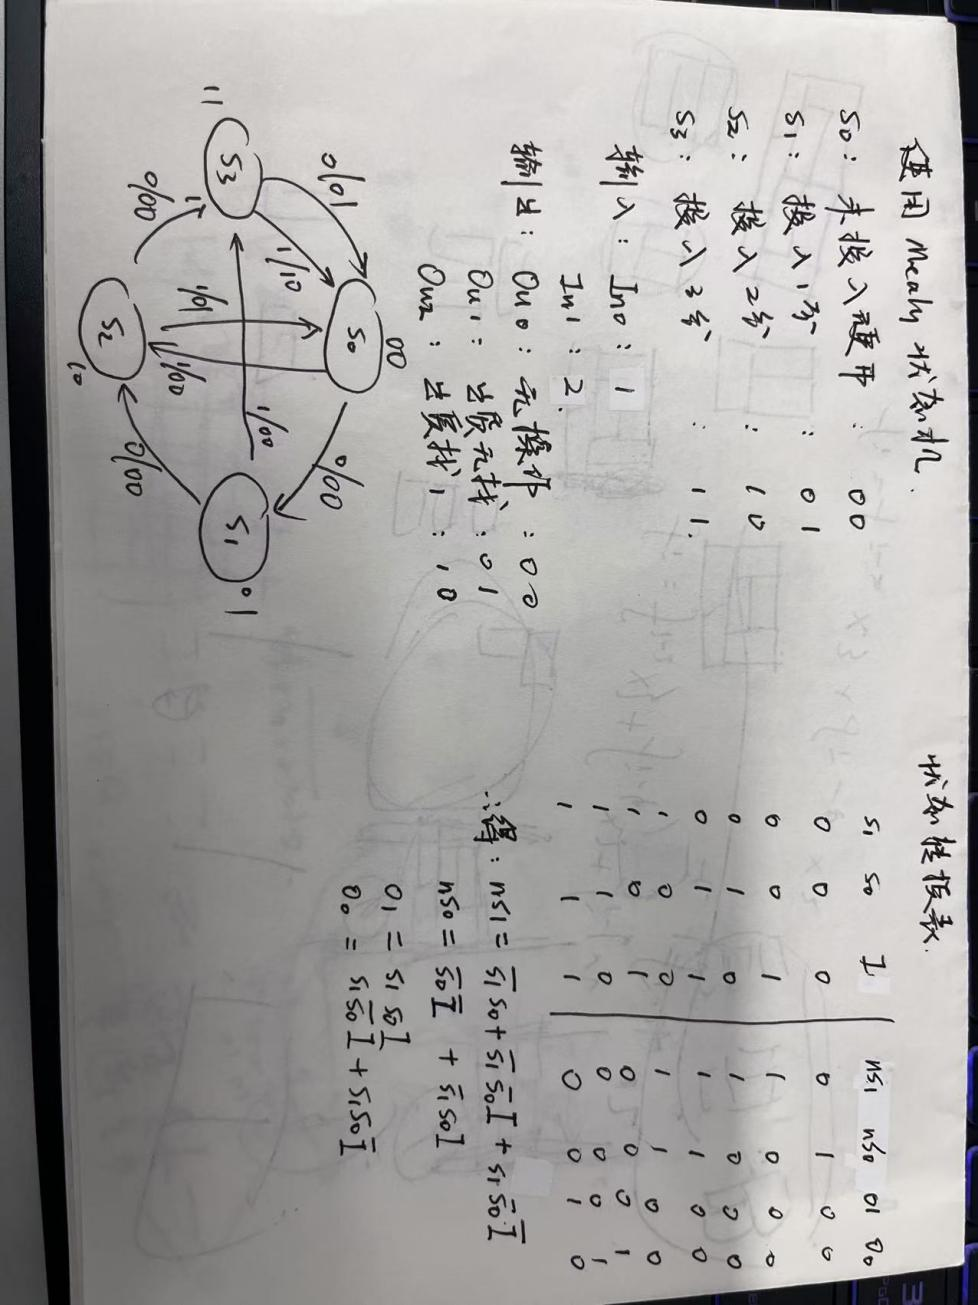 使用 Mealy 状态机.
S0: 未投入硬币: 00
S1: 投入1分: 01
S2: 投入2分: 10
S3: 投入3分: 11.
输入: In0: 1
In1: 2.
输出: Ou0: 无操作: 00
Ou1: 出货无找: 01
Ou2: 出货找1: 10
00
S0
0/01
1/10
0/00
11
S3
1/01
1/00
1/00
S1
01
0/00
S2
10
0/00
状态转换表.
S1 S0 I nS1 nS0 O1 O0
0 0 0 0 1 0 0
0 0 1 1 0 0 0
0 1 0 1 0 0 0
0 1 1 1 1 0 0
1 0 0 1 1 0 0
1 0 1 0 0 0 1
1 1 0 0 0 0 1
1 1 1 0 0 1 0
∴得: nS1 = S̅1S0 + S̅1S̅0I + S1S̅0I̅
nS0 = S̅0I̅ + S̅1S0I
O1 = S1S0I
O0 = S1S̅0I + S1S0I̅